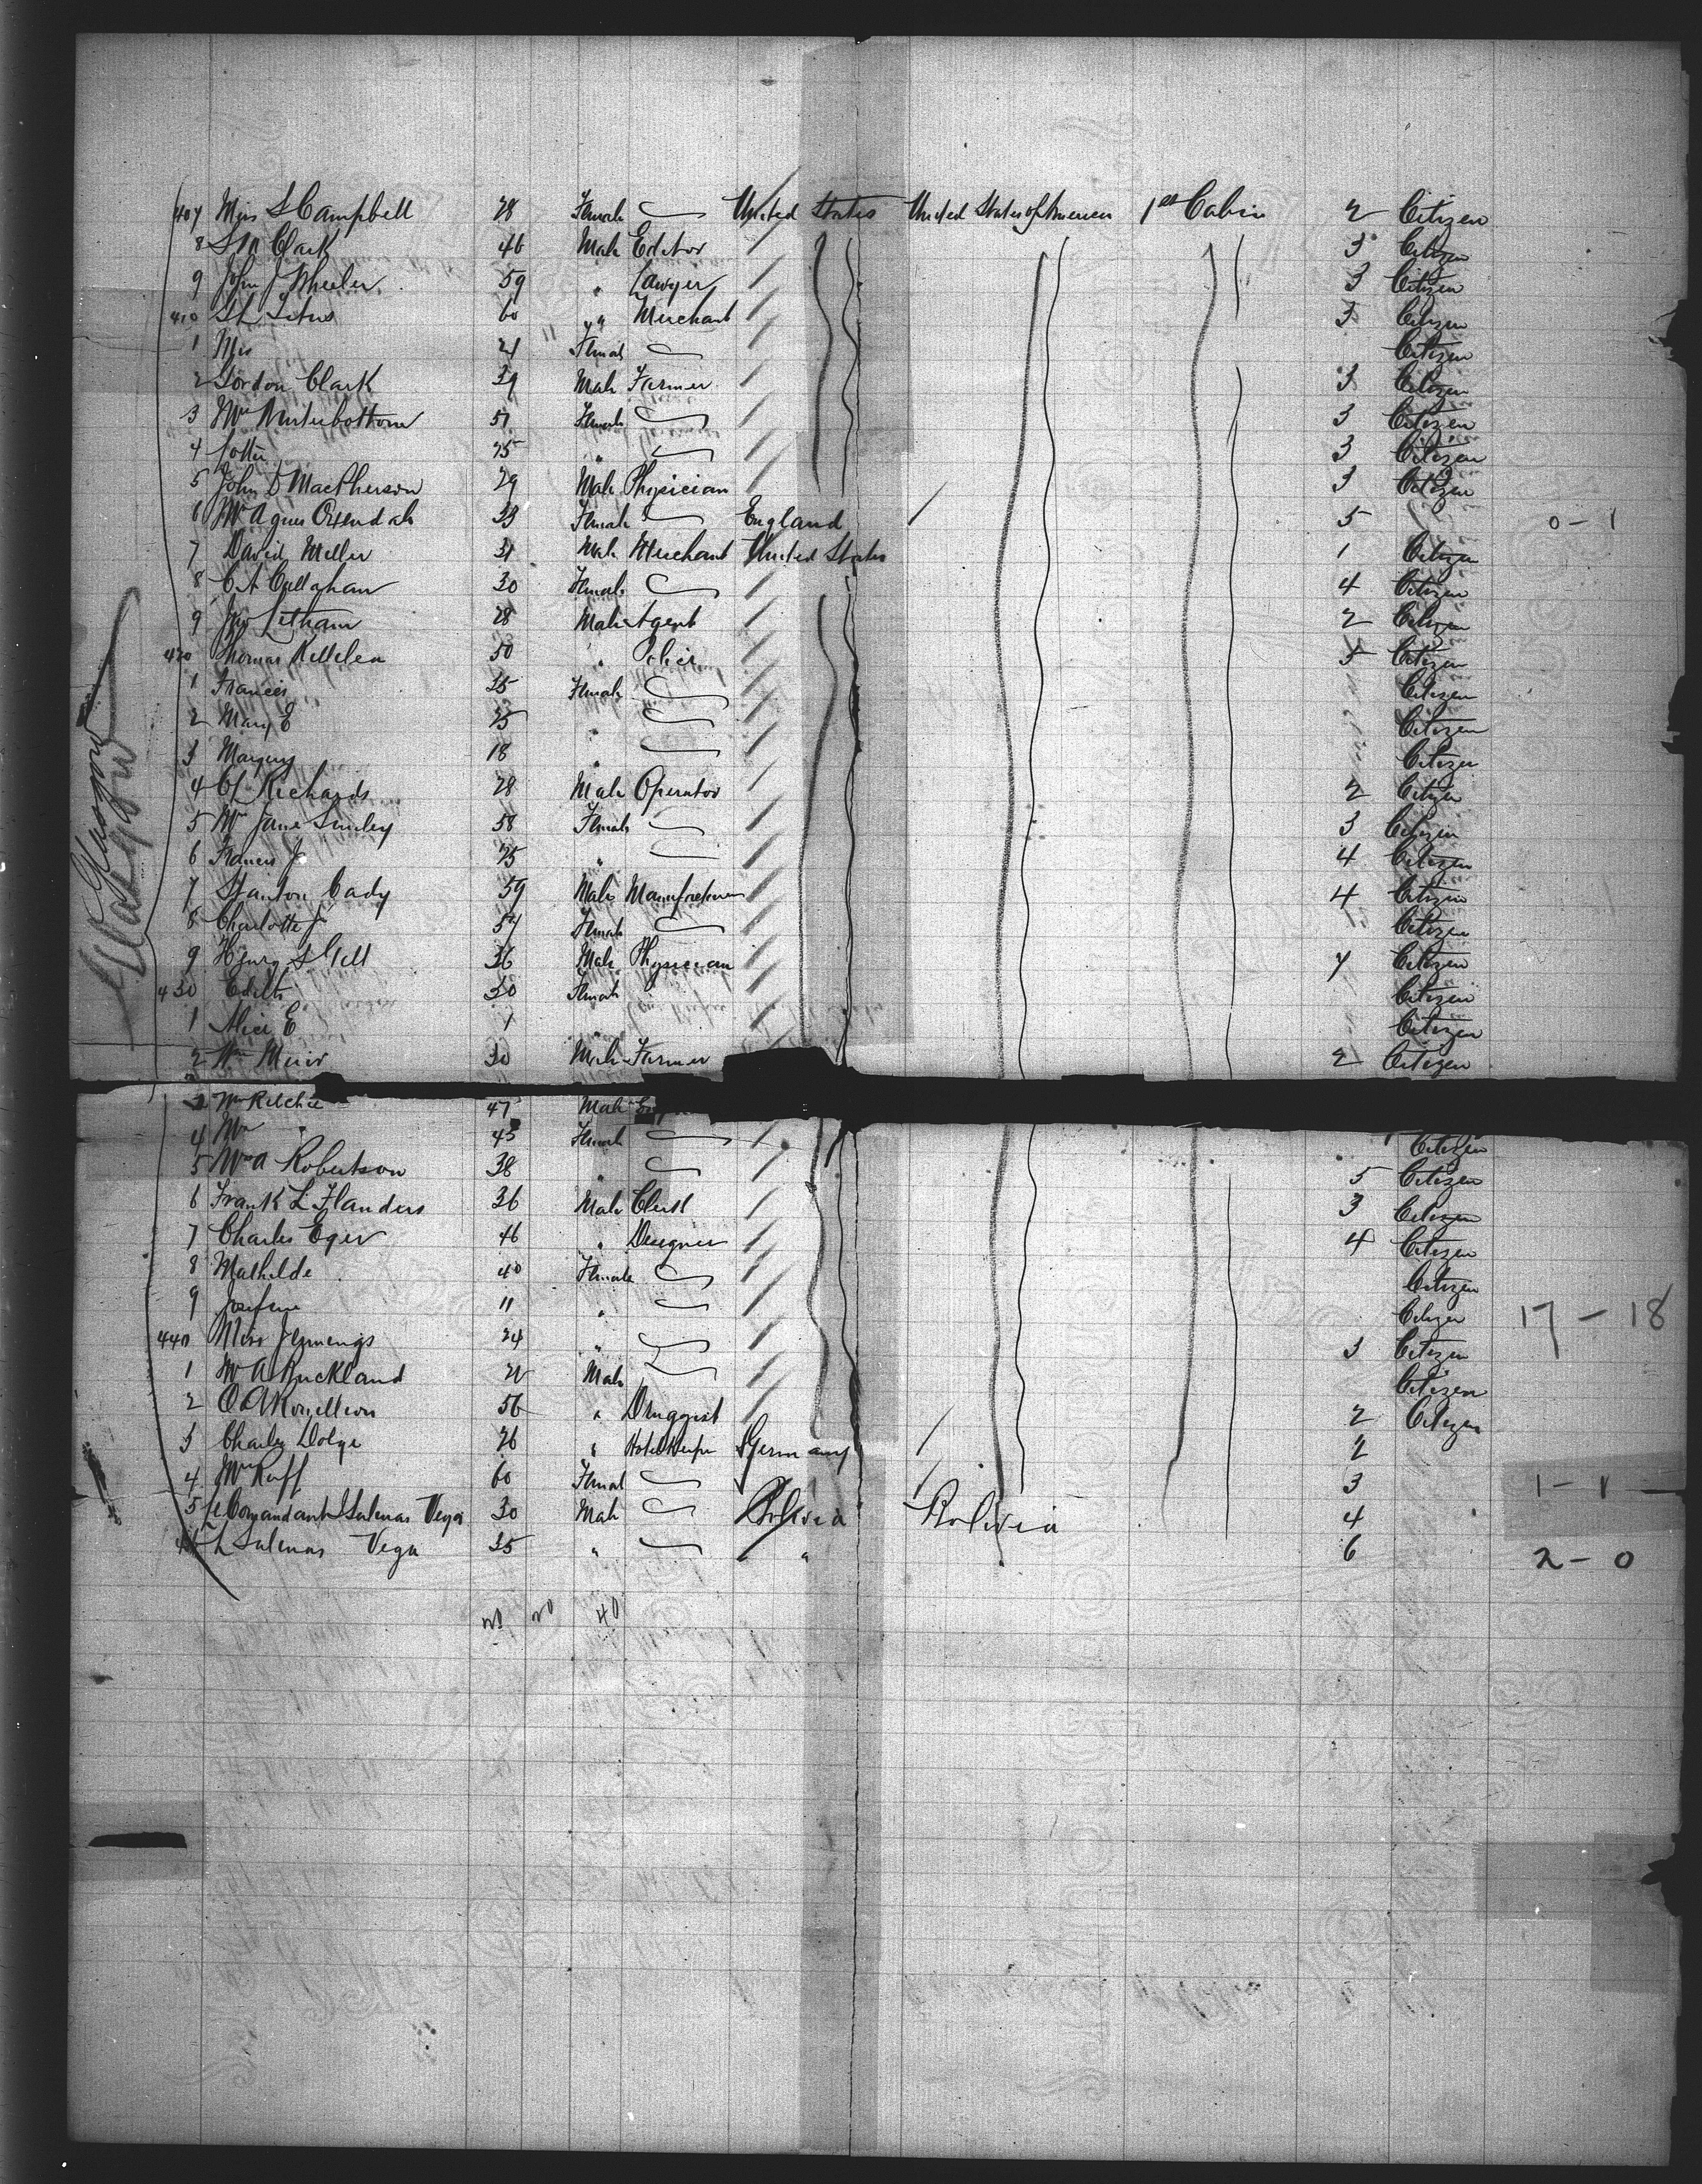 407 Miss S Campbell 28 Female United States United States of America 1st Cabin 2 Citizen
8 S N Clark 46 Male Editor 3 Citizen
9 John J Wheeler 59 " Lawyer 3 Citizen
410 60 " Merchant 3 Citizen
1 Mrs 21 Female Citizen
2 Gordon Clark 39 Male Farmer 3 Citizen
3 Mrs Winterbottom 51 Female 3 Citizen
4 Lottie 25 " 3 Citizen
5 John D MacPherson 29 Male Physician 3 Citizen
6 Mrs Agnes 33 Female England 5 0 - 1
7 David Miller 31 Male Merchant United States 1 Citizen
8 C A Callahan 30 Female 4 Citizen
9 Jno Letham 28 Male Agent 2 Citizen
420 Thomas 50 " 5 Citizen
1 Frances Female Citizen
2 Mary E 25 " Citizen
3 Margery 18 " Citizen
4 Richards 28 Male Operator 2 Citizen
5 Mrs Jane 58 Female 3 Citizen
6 Frances J 25 " 4 Citizen
Glasgow
Glasgow
7 Stanton Cady 59 Male 4 Citizen
8 Charlotte J Female Citizen
9 Henry S Gill 36 Male Physician 4 Citizen
430 Edith 30 Female Citizen
1 Alice E 1 " Citizen
2 Wm Muir 30 Male Farmer 2 Citizen
3 Wm Ritchie 47 Male
4 Mrs " 45 Female Citizen
5 Mrs A Robertson 38 " 5 Citizen
6 Frank L Flanders 36 Male Clerk 3 Citizen
7 Charles Eger 46 " Designer 4 Citizen
8 Mathilde 40 Female Citizen
9 Josefine 11 " Citizen 17 - 18
440 Miss Jennings 24 " 3 Citizen
1 Mr A Buckland Male Citizen
2 56 " Druggist 2 Citizen
3 Charles Dolge 26 " Hotel Keeper Germany 2
4 Mrs Ruff 60 Female 3 1 - 1
5 Le Comandant Salinas Vega 30 Male Bolivia Bolivia 4
L Salinas Vega 35 " " " 6 2 - 0